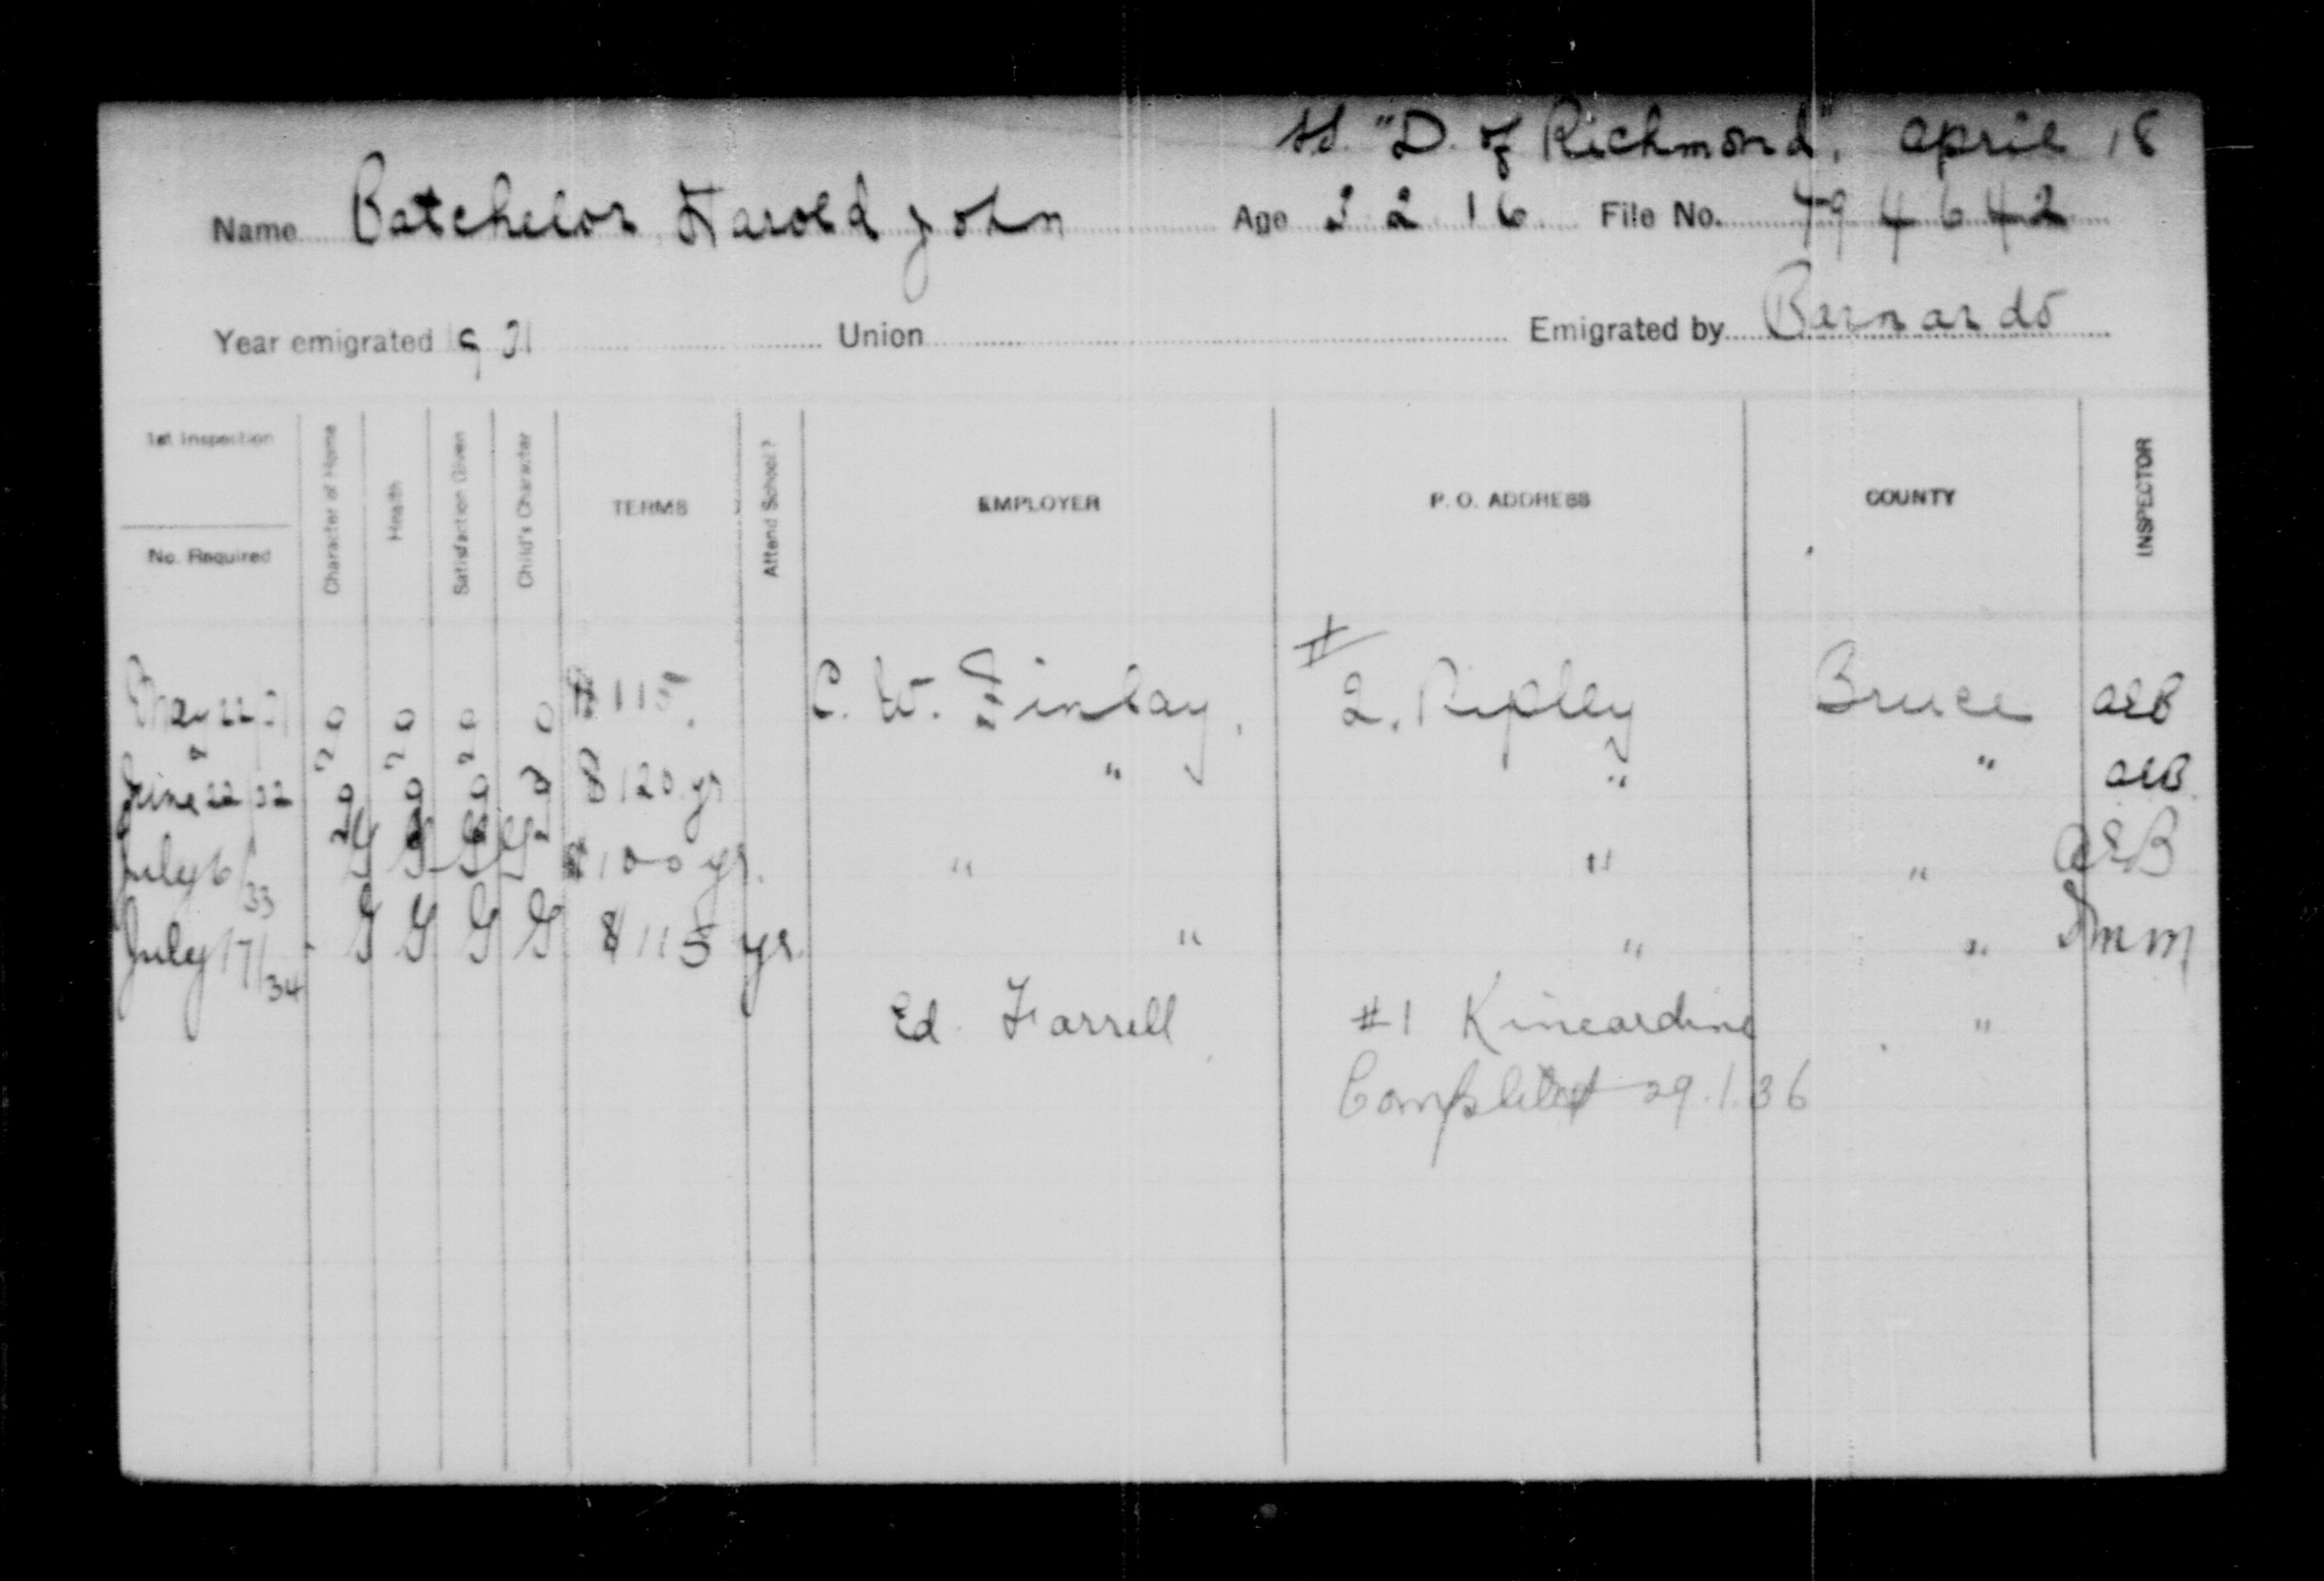 SS. "D. of Richmond". April 18
Name Batchelor Harold John Age 3 2 16 File No. 494642
Year emigrated 1931 Union Emigrated by Barnardo
1st Inspection
No. Required
Character of Home
Health
Satisfaction Given
Child's Character
TERMS
Attend School?
EMPLOYER
P. O. ADDRESS
COUNTY
INSPECTOR
May 22/31 g g g g $115. C. W. Finlay, #2. Ripley Bruce AEB
June 22/32 g g g g $120 yr " " " AEB
July 6/33 G G G G $100 yr. " " " AEB
July 17/34 - G G G G $115 yr. " " "
Ed. Farrell #1 Kincardine "
Completed 29.1.36